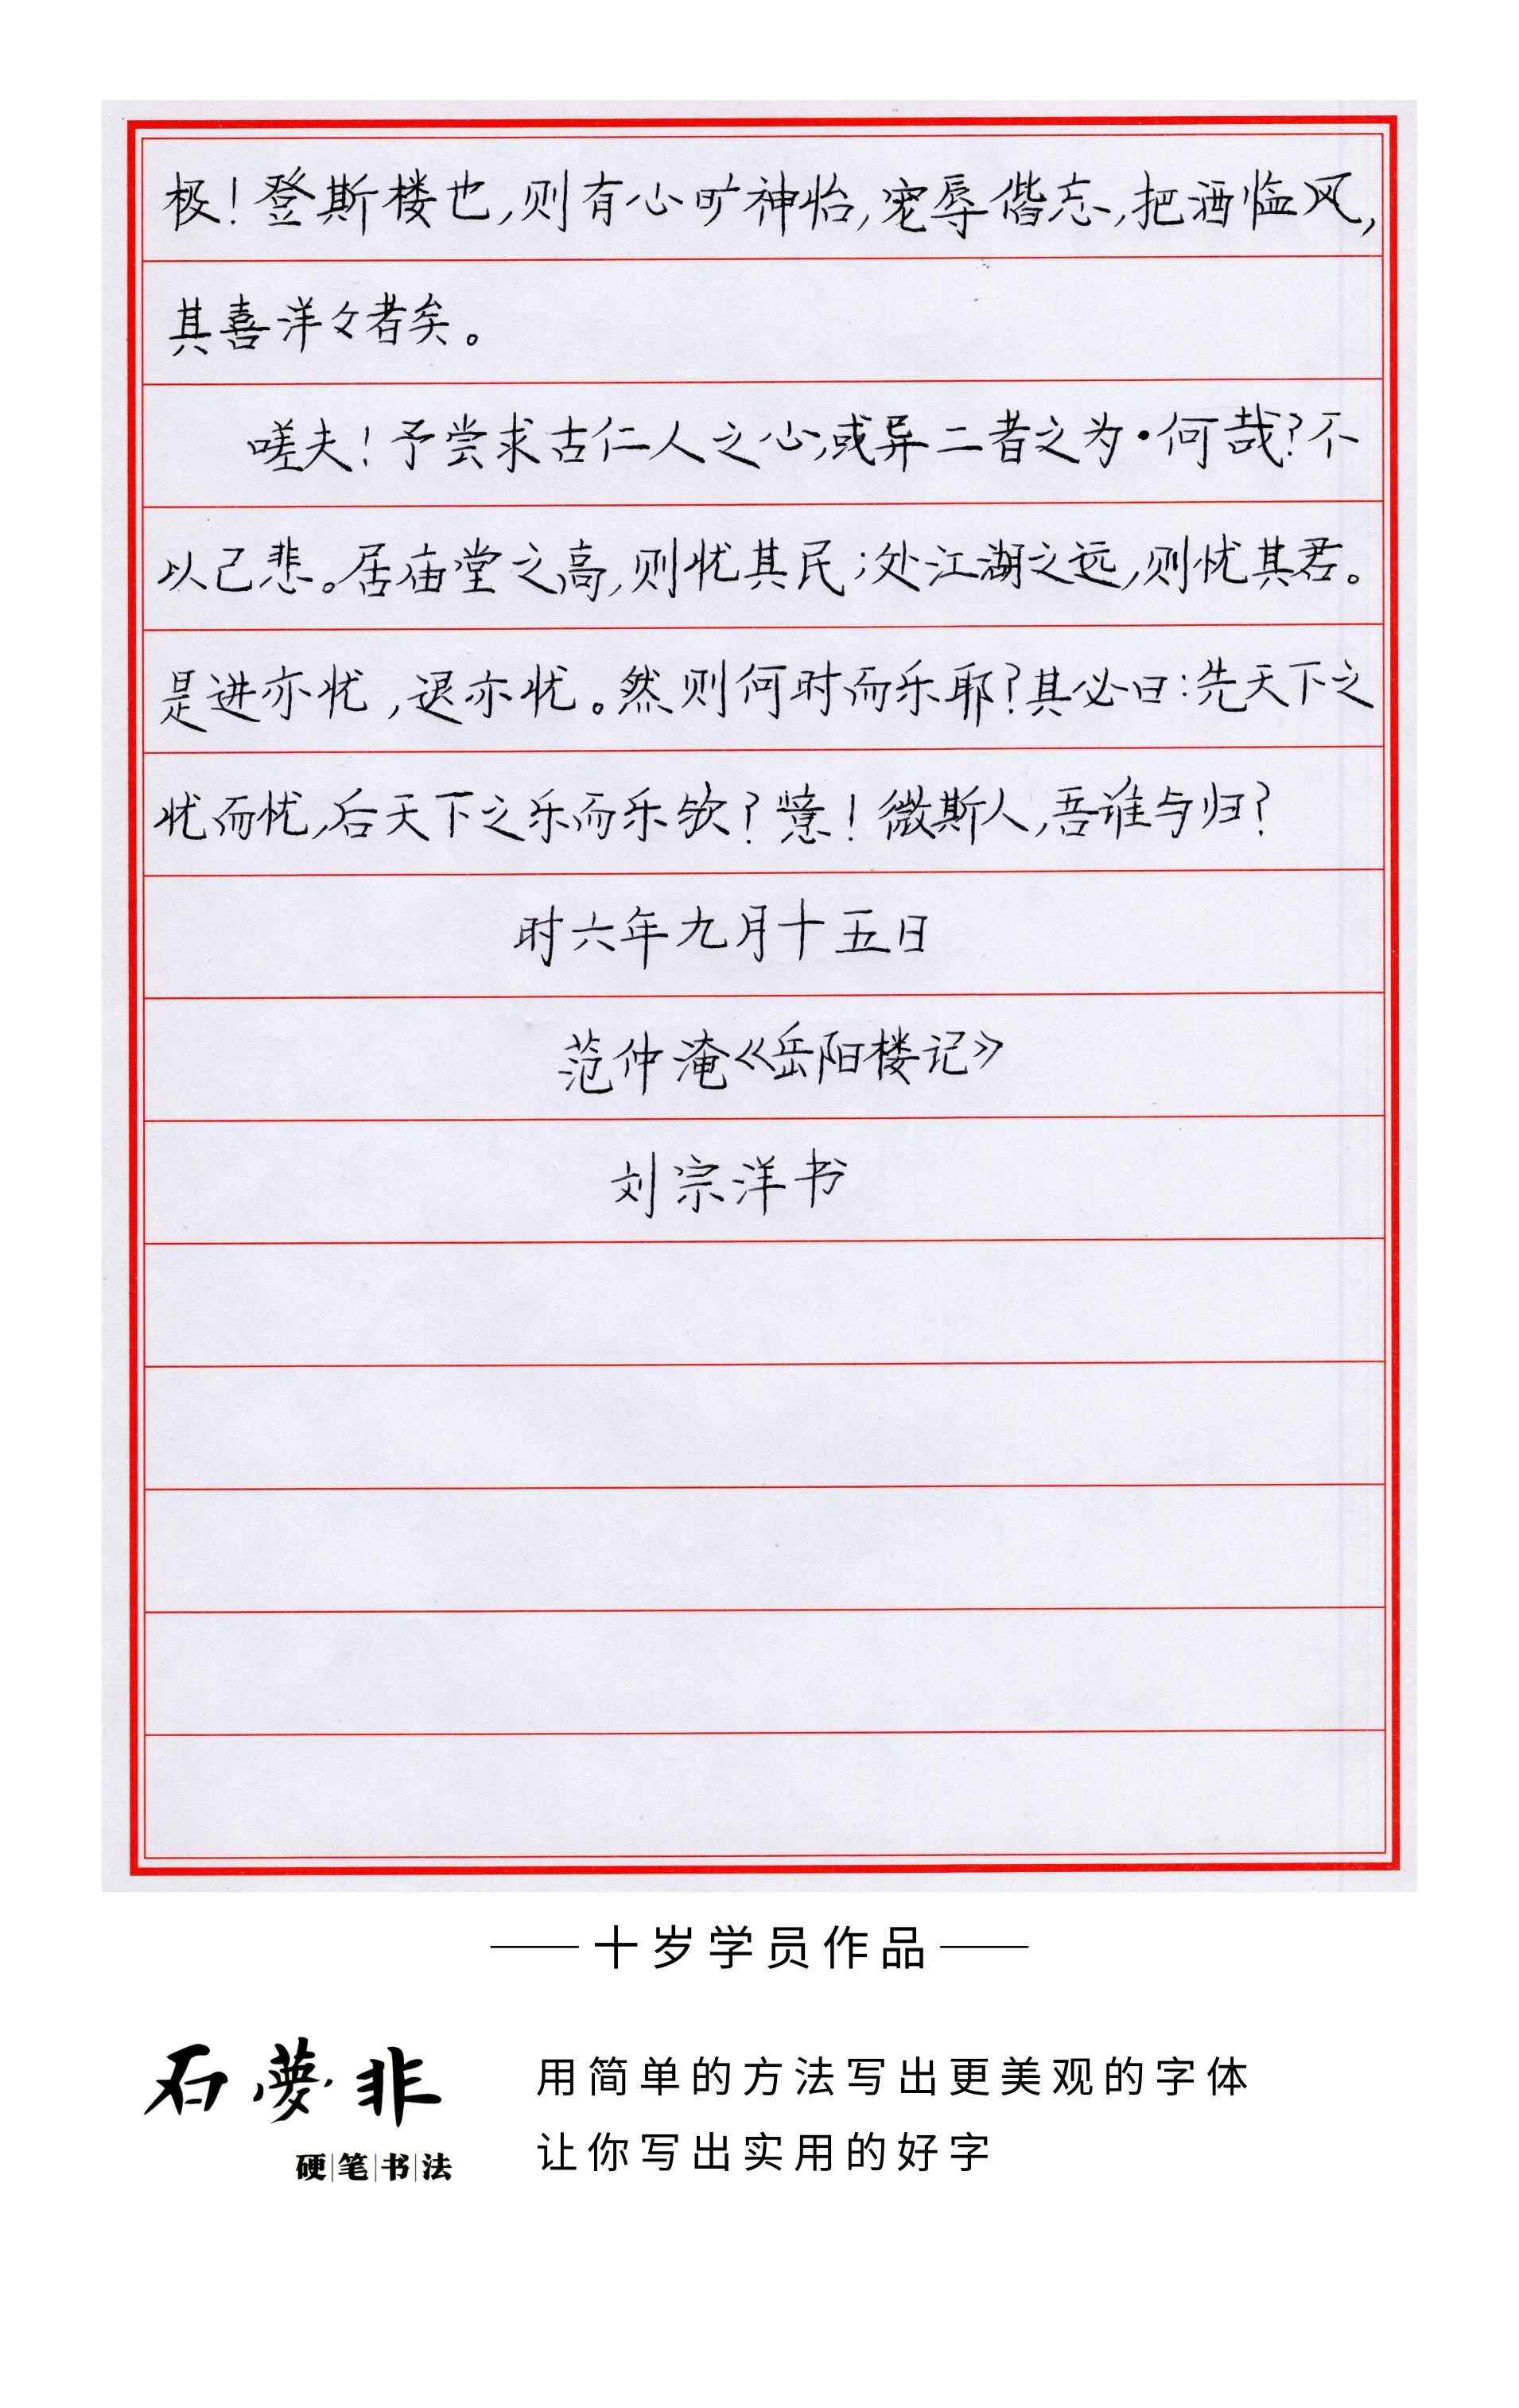 极！登斯楼也，则有心旷神怡，宠辱偕忘，把酒临风，
其喜洋々者矣。
嗟夫！予尝求古仁人之心，或异二者之为·何哉？不
以己悲。居庙堂之高，则忧其民；处江湖之远，则忧其君。
是进亦忧，退亦忧。然则何时而乐耶？其必曰：先天下之
忧而忧，后天下之乐而乐欤？噫！微斯人，吾谁与归？
时六年九月十五日
范仲淹《岳阳楼记》
刘宗洋书
十岁学员作品
石夢非
硬笔书法
用简单的方法写出更美观的字体
让你写出实用的好字